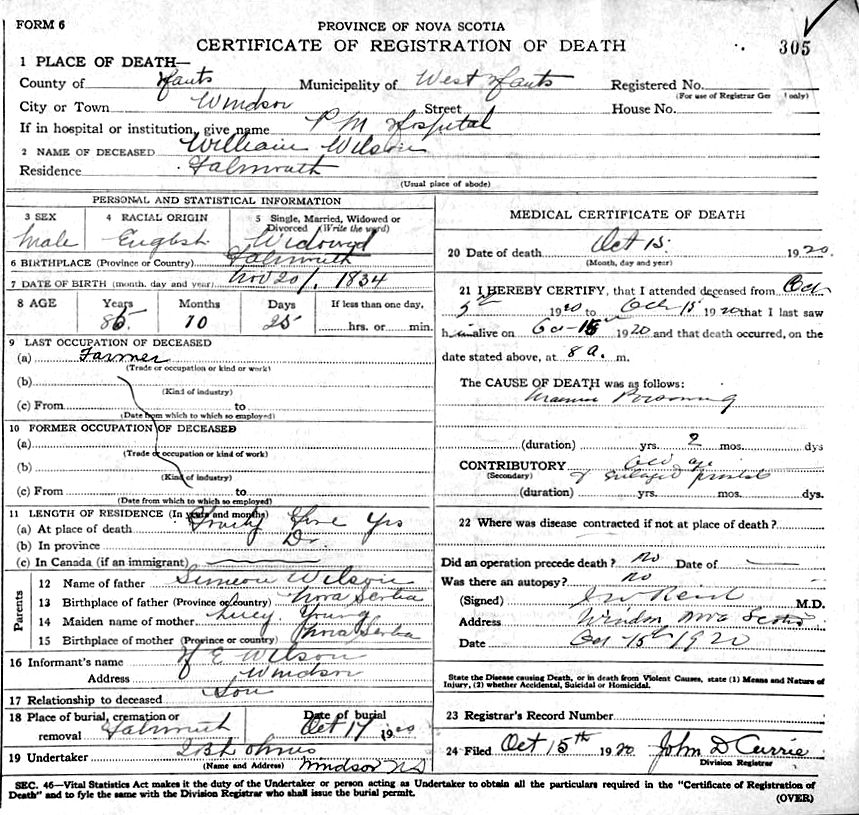 FORM 6
PROVINCE OF NOVA SCOTIA
CERTIFICATE OF REGISTRATION OF DEATH
305
1 PLACE OF DEATH—
County of Hants Municipality of West Hants Registered No.
(For use of Registrar Ger l only)
City or Town Windsor Street House No.
If in hospital or institution, give name P M Hospital
2 NAME OF DECEASED William Wilson
Residence Falmouth
(Usual place of abode)
PERSONAL AND STATISTICAL INFORMATION
3 SEX 4 RACIAL ORIGIN 5 Single, Married, Widowed or Divorced (Write the word)
Male English Widowed
6 BIRTHPLACE (Province or Country) Falmouth
7 DATE OF BIRTH (month, day and year) Nov 20/. 1834
8 AGE Years Months Days If less than one day,
85 10 25 hrs. or min.
9 LAST OCCUPATION OF DECEASED
(a) Farmer
(Trade or occupation or kind or work)
(b)
(Kind of industry)
(c) From to
(Date from which to which so employed)
10 FORMER OCCUPATION OF DECEASED
(a)
(Trade or occupation or kind of work)
(b)
(Kind of industry)
(c) From to
(Date from which to which so employed)
11 LENGTH OF RESIDENCE (In years and months)
(a) At place of death Yrs
(b) In province Do
(c) In Canada (if an immigrant)
Parents
12 Name of father Simeon Wilson
13 Birthplace of father (Province or country) Nova Scotia
14 Maiden name of mother Lucy Young
15 Birthplace of mother (Province or country) Nova Scotia
16 Informant's name E Wilson
Address Windsor
17 Relationship to deceased Son
18 Place of burial, cremation or removal Falmouth Date of burial Oct 17 1920
19 Undertaker
(Name and Address) Windsor NS
MEDICAL CERTIFICATE OF DEATH
20 Date of death Oct 15 1920
(Month, day and year)
21 I HEREBY CERTIFY, that I attended deceased from Oct
5th 1920 to Oct 15 1920 that I last saw
h im alive on Oct 15 1920 and that death occurred, on the
date stated above, at 8 a. m.
The CAUSE OF DEATH was as follows:
Uraemic Poisoning
(duration) yrs. 2 mos. dys
CONTRIBUTORY Old age
(Secondary) & enlarged prostate
(duration) yrs. mos. dys.
22 Where was disease contracted if not at place of death?
Did an operation precede death? no Date of
Was there an autopsy? no
(Signed) J W Reid M.D.
Address Windsor Nova Scotia
Date Oct 15th 1920
State the Disease causing Death, or in death from Violent Causes, state (1) Means and Nature of
Injury, (2) whether Accidental, Suicidal or Homicidal.
23 Registrar's Record Number
24 Filed Oct 15th 1920 John D Currie
Division Registrar
SEC. 46—Vital Statistics Act makes it the duty of the Undertaker or person acting as Undertaker to obtain all the particulars required in the "Certificate of Registration of
Death" and to fyle the same with the Division Registrar who shall issue the burial permit.
(OVER)